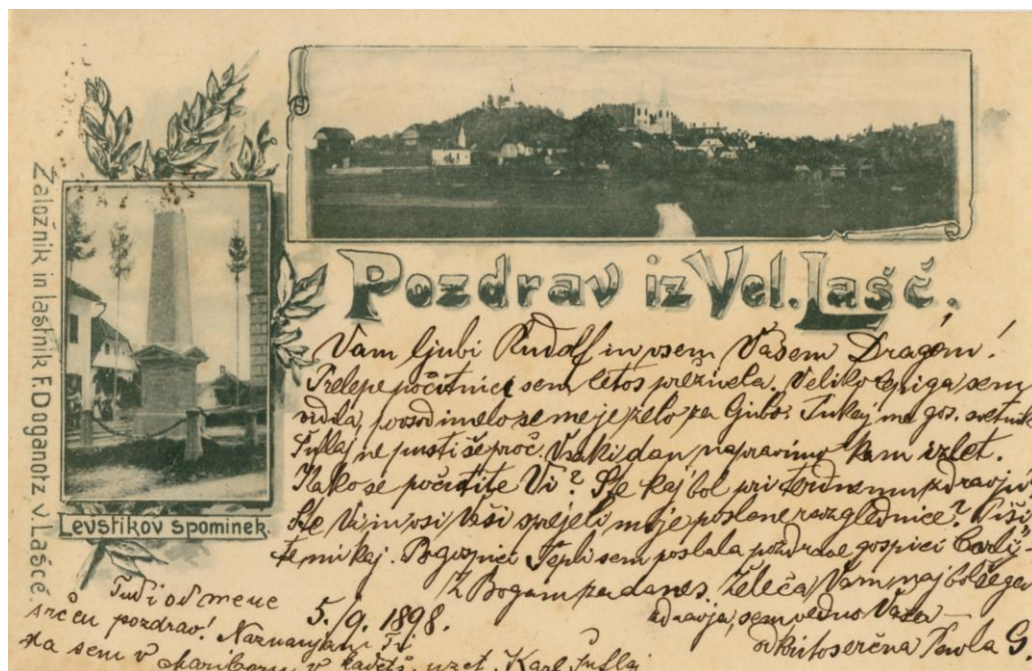 Pozdrav iz Vel. Lašč.
Založnik in lastnik F. Doganotz, v Lašče.
Levstikov spominek.
Vam ljubi Rudolf in vsem Vašem Dragem!
Prelepe počitnice sem letos preživela. Veliko lepiga sem
vidila, povsod imelo se me je zelo za ljubo. Tukaj me gos. svetnik
Tuflaj ne pusti še proč. Vsaki dan napravimo kam izlet.
Kako se počutite Vi? Ste kaj bol pri terdnemu zdravju
Ste Vi in vsi Vaši sprejeli moje poslane razglednice? Piši-
te mi kaj. Po gospici Tepli sem poslala pozdrave gospici
Z Bogam za danes. Želeča Vam najbolšega
zdravja, sem vedno Vaša
odkritoserčna Pavla G
Tudi od mene
srčen pozdrav! Naznanjam
5./9. 1898.
da sem v Mariboru v kadetš. uzet. Karl Tuflaj